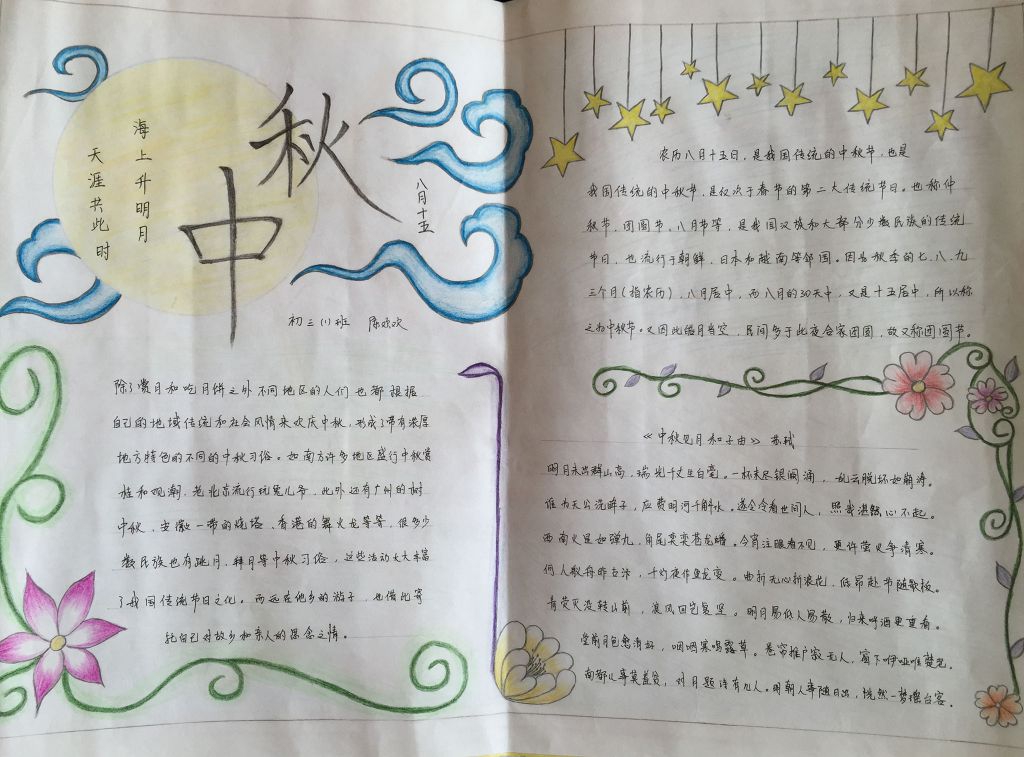 海上升明月
天涯共此时
中秋
八月十五
初三(1)班 陈欢欢
除了赏月和吃月饼之外不同地区的人们也都根据
自己的地域传统和社会风情来欢庆中秋,形成了带有浓厚
地方特色的不同的中秋习俗。如南方许多地区盛行中秋赏
桂和观潮,老北京流行玩兔儿爷,此外还有广州的树
中秋,安徽一带的烧塔,香港的舞火龙等等,很多少
数民族也有跳月,拜月等中秋习俗,这些活动大大丰富
了我国传统节日文化。而远在他乡的游子,也借此寄
托自己对故乡和亲人的思念之情。
农历八月十五日,是我国传统的中秋节,也是
我国传统的中秋节,是仅次于春节的第二大传统节日。也称仲
秋节,团圆节,八月节等,是我国汉族和大部分少数民族的传统
节日,也流行于朝鲜,日本和越南等邻国。因为秋季的七、八、九
三个月(指农历),八月居中,而八月的30天中,又是十五居中,所以称
之为中秋节。又因此夜月当空,民间多于此夜合家团圆,故又称团圆节。
《中秋见月和子由》 苏轼
明月未出群山高,瑞光千丈生白毫。一杯未尽银阙涌,乱云脱坏如崩涛。
谁为天公洗眸子,应费明河千斛水。遂令冷看世间人,照我湛然心不起。
西南火星如弹丸,角尾奕奕苍龙蟠。今宵注眼看不见,更许萤火争清寒。
何人舣舟昨古汴,千灯夜作鱼龙变。曲折无心逐浪花,低昂赴节随歌板。
青荧灭没转山前,浪风回岂复坚。明月易低人易散,归来呼酒更重看。
堂前月色愈清好,咽咽寒螀鸣露草。卷帘推户寂无人,窗下咿哑唯楚老。
南都从事莫羞贫,对月题诗有几人。明朝人事随日出,恍然一梦瑶台客。